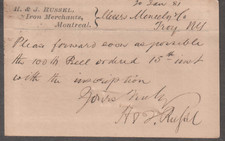 20 Jan 81
H. & J. RUSSEL,
Iron Merchants,
Montreal.
Messrs Meneely & Co
Troy NY
Please forward soon as possible
the 100 lb Bell ordered 15th inst
with the inscription
Yours truly
H & J Russel